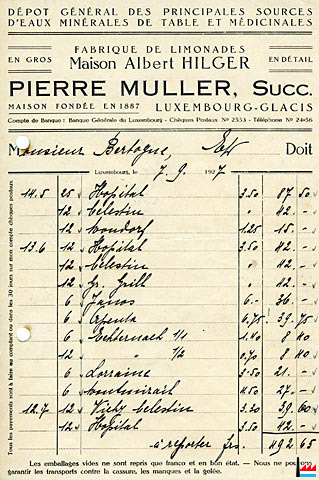 DÉPOT GÉNÉRAL DES PRINCIPALES SOURCES
D'EAUX MINÉRALES DE TABLE ET MÉDICINALES
FABRIQUE DE LIMONADES
EN GROS Maison Albert HILGER EN DÉTAIL
PIERRE MULLER, Succ.
MAISON FONDÉE EN 1887 LUXEMBOURG-GLACIS
Compte de Banque: Banque Générale du Luxembourg - Chèques Postaux Nº 2533 - Téléphone Nº 24-56
Monsieur Bertogne, Doit
Luxembourg, le 7. 9. 1937
14.5 25 Hopital 3.50 87.50
12 Celestin " 42.-
12 Mondorf 1.25 15.-
13.6 12 Hopital 3.50 42.-
12 Celestin " 42.-
12 Gr. Grill " 42.-
6 Janos 6.- 36.-
6 6.75 39.75
6 Echternach 1/1 1.40 8 40
12 " 1/2 0.70 8 40
6 Lorraine 3.50 21.-
6 4.50 27.-
12.7 12 Vichy Celestin 3.30 39.60
12 Hopital 3.50 42.-
à reporter frs 492.65
Tous les payements sont à faire au comptant ou dans les 30 jours sur mon compte chèques postaux
Les emballages vides ne sont repris que franco et en bon état. — Nous ne pouvons
garantir les transports contre la cassure, les manques et la gelée.